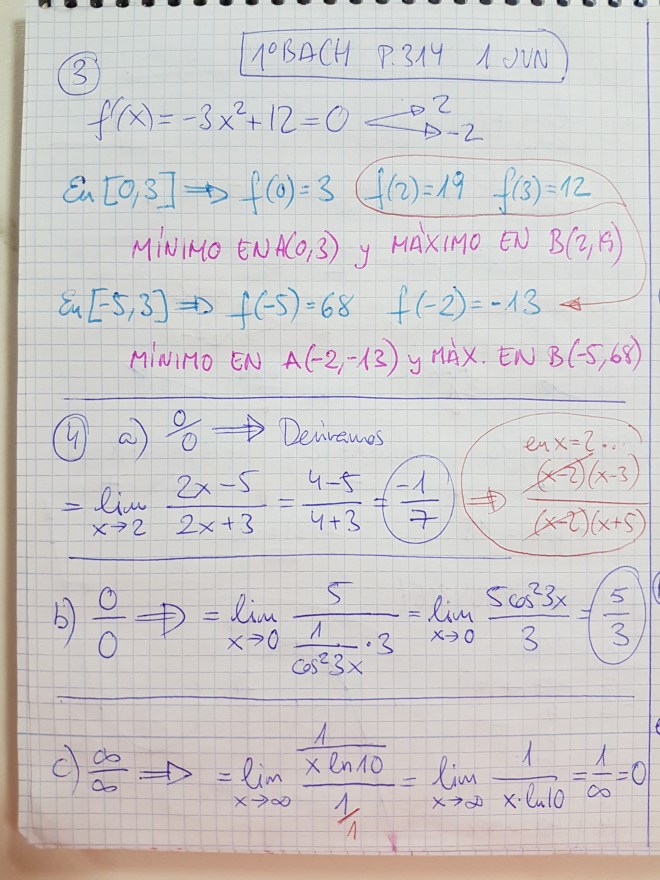 1º BACH P.314 1 JUN
3
f'(x) = -3x² + 12 = 0 → 2 → -2
En [0,3] ⇒ f(0) = 3 f(2) = 19 f(3) = 12
MÍNIMO EN A(0,3) y MÁXIMO EN B(2,19)
En [-5,3] ⇒ f(-5) = 68 f(-2) = -13
MÍNIMO EN A(-2,-13) y MÁX. EN B(-5,68)
4 a) 0/0 ⇒ Derivamos
= lim x→2 (2x-5)/(2x+3) = (4-5)/(4+3) = -1/7 ⇒
en x=2..
(x-2)(x-3)/(x-2)(x+5)
b) 0/0 ⇒ = lim x→0 5/(1/cos²3x · 3) = lim x→0 5cos²3x/3 = 5/3
c) ∞/∞ ⇒ = lim x→∞ (1/(x ln10))/(1/1) = lim x→∞ 1/(x·ln10) = 1/∞ = 0